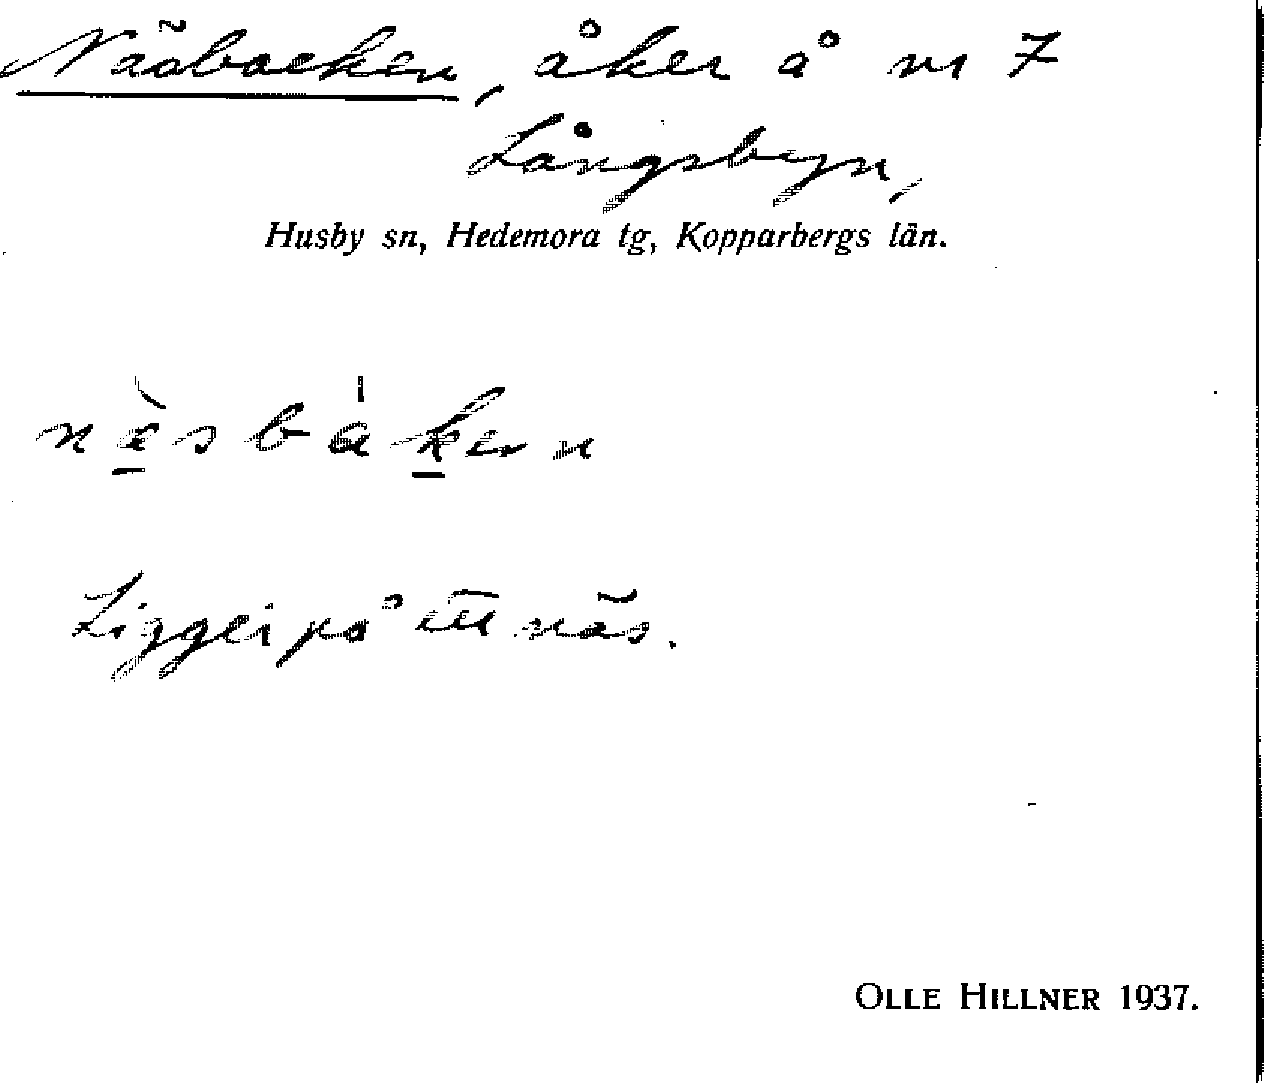 Näsbacken, åker å nr 7
Långsbyn,
Husby sn, Hedemora tg, Kopparbergs län.
Ligger på ett näs.
OLLE HILLNER 1937.